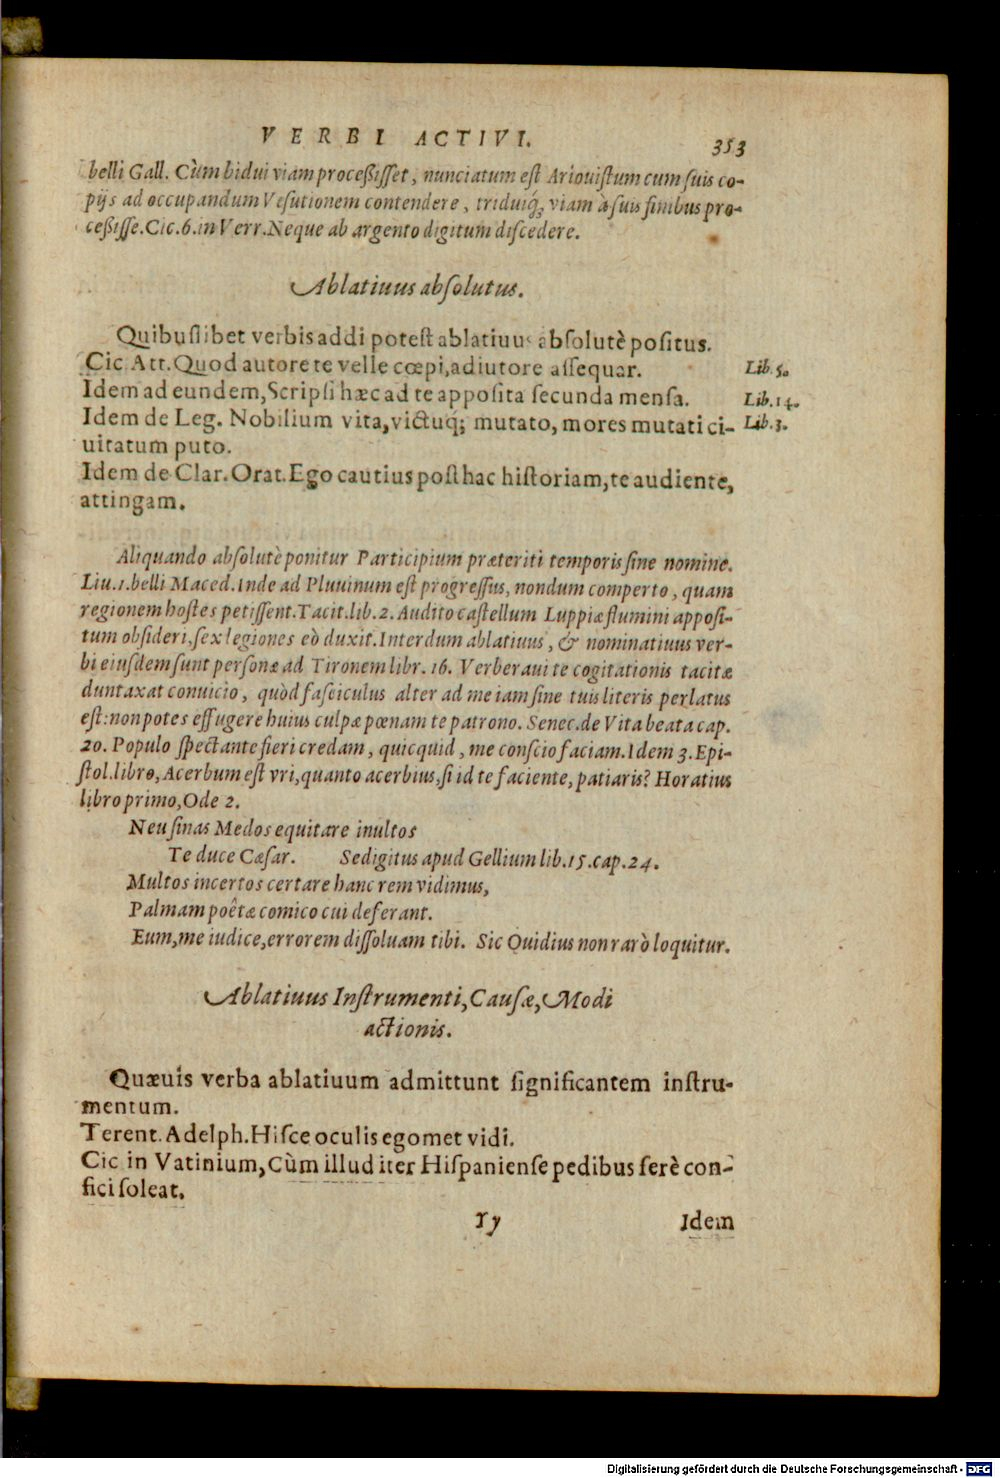 VERBI ACTIVI. 353
belli Gall. Cùm bidui viam proceßisset, nunciatum est Ariouistum cum suis co-
pijs ad occupandum Vesutionem contendere, triduiq́; viam à suis finibus pro-
ceßisse. Cic. 6. in Verr. Neque ab argento digitum discedere.
Ablatiuus absolutus.
Quibuslibet verbis addi potest ablatiuus absolutè positus.
Cic Att. Quod autore te velle cœpi, adiutore assequar. Lib. 5.
Idem ad eundem, Scripsi hæc ad te apposita secunda mensa. Lib. 14.
Idem de Leg. Nobilium vita, victuq́; mutato, mores mutati ci- Lib. 3.
uitatum puto.
Idem de Clar. Orat. Ego cautius posthac historiam, te audiente,
attingam.
Aliquando absolutè ponitur Participium præteriti temporis sine nomine.
Liu. 1. belli Maced. Inde ad Pluuinum est progressus, nondum comperto, quam
regionem hostes petissent. Tacit. lib. 2. Audito castellum Luppiæ flumini apposi-
tum obsideri, sex legiones eò duxit. Interdum ablatiuus, & nominatiuus ver-
bi eiusdem sunt personæ ad Tironem libr. 16. Verberaui te cogitationis tacitæ
duntaxat conuicio, quòd fasciculus alter ad me iam sine tuis literis perlatus
est: non potes effugere huius culpæ pœnam te patrono. Senec. de Vita beata cap.
20. Populo spectante fieri credam, quicquid, me conscio faciam. Idem 3. Epi-
stol. libro, Acerbum est vri, quanto acerbius, si id te faciente, patiaris? Horatius
libro primo, Ode 2.
Neu sinas Medos equitare inultos
Te duce Cæsar. Sedigitus apud Gellium lib. 15. cap. 24.
Multos incertos certare hanc rem vidimus,
Palmam poêtæ comico cui deferant.
Eum, me iudice, errorem dissoluam tibi. Sic Ouidius non rarò loquitur.
Ablatiuus Instrumenti, Causæ, Modi
actionis.
Quæuis verba ablatiuum admittunt significantem instru-
mentum.
Terent. Adelph. Hisce oculis egomet vidi.
Cic in Vatinium, Cùm illud iter Hispaniense pedibus ferè con-
fici soleat.
Yy Idem
Digitalisierung gefördert durch die Deutsche Forschungsgemeinschaft - DFG